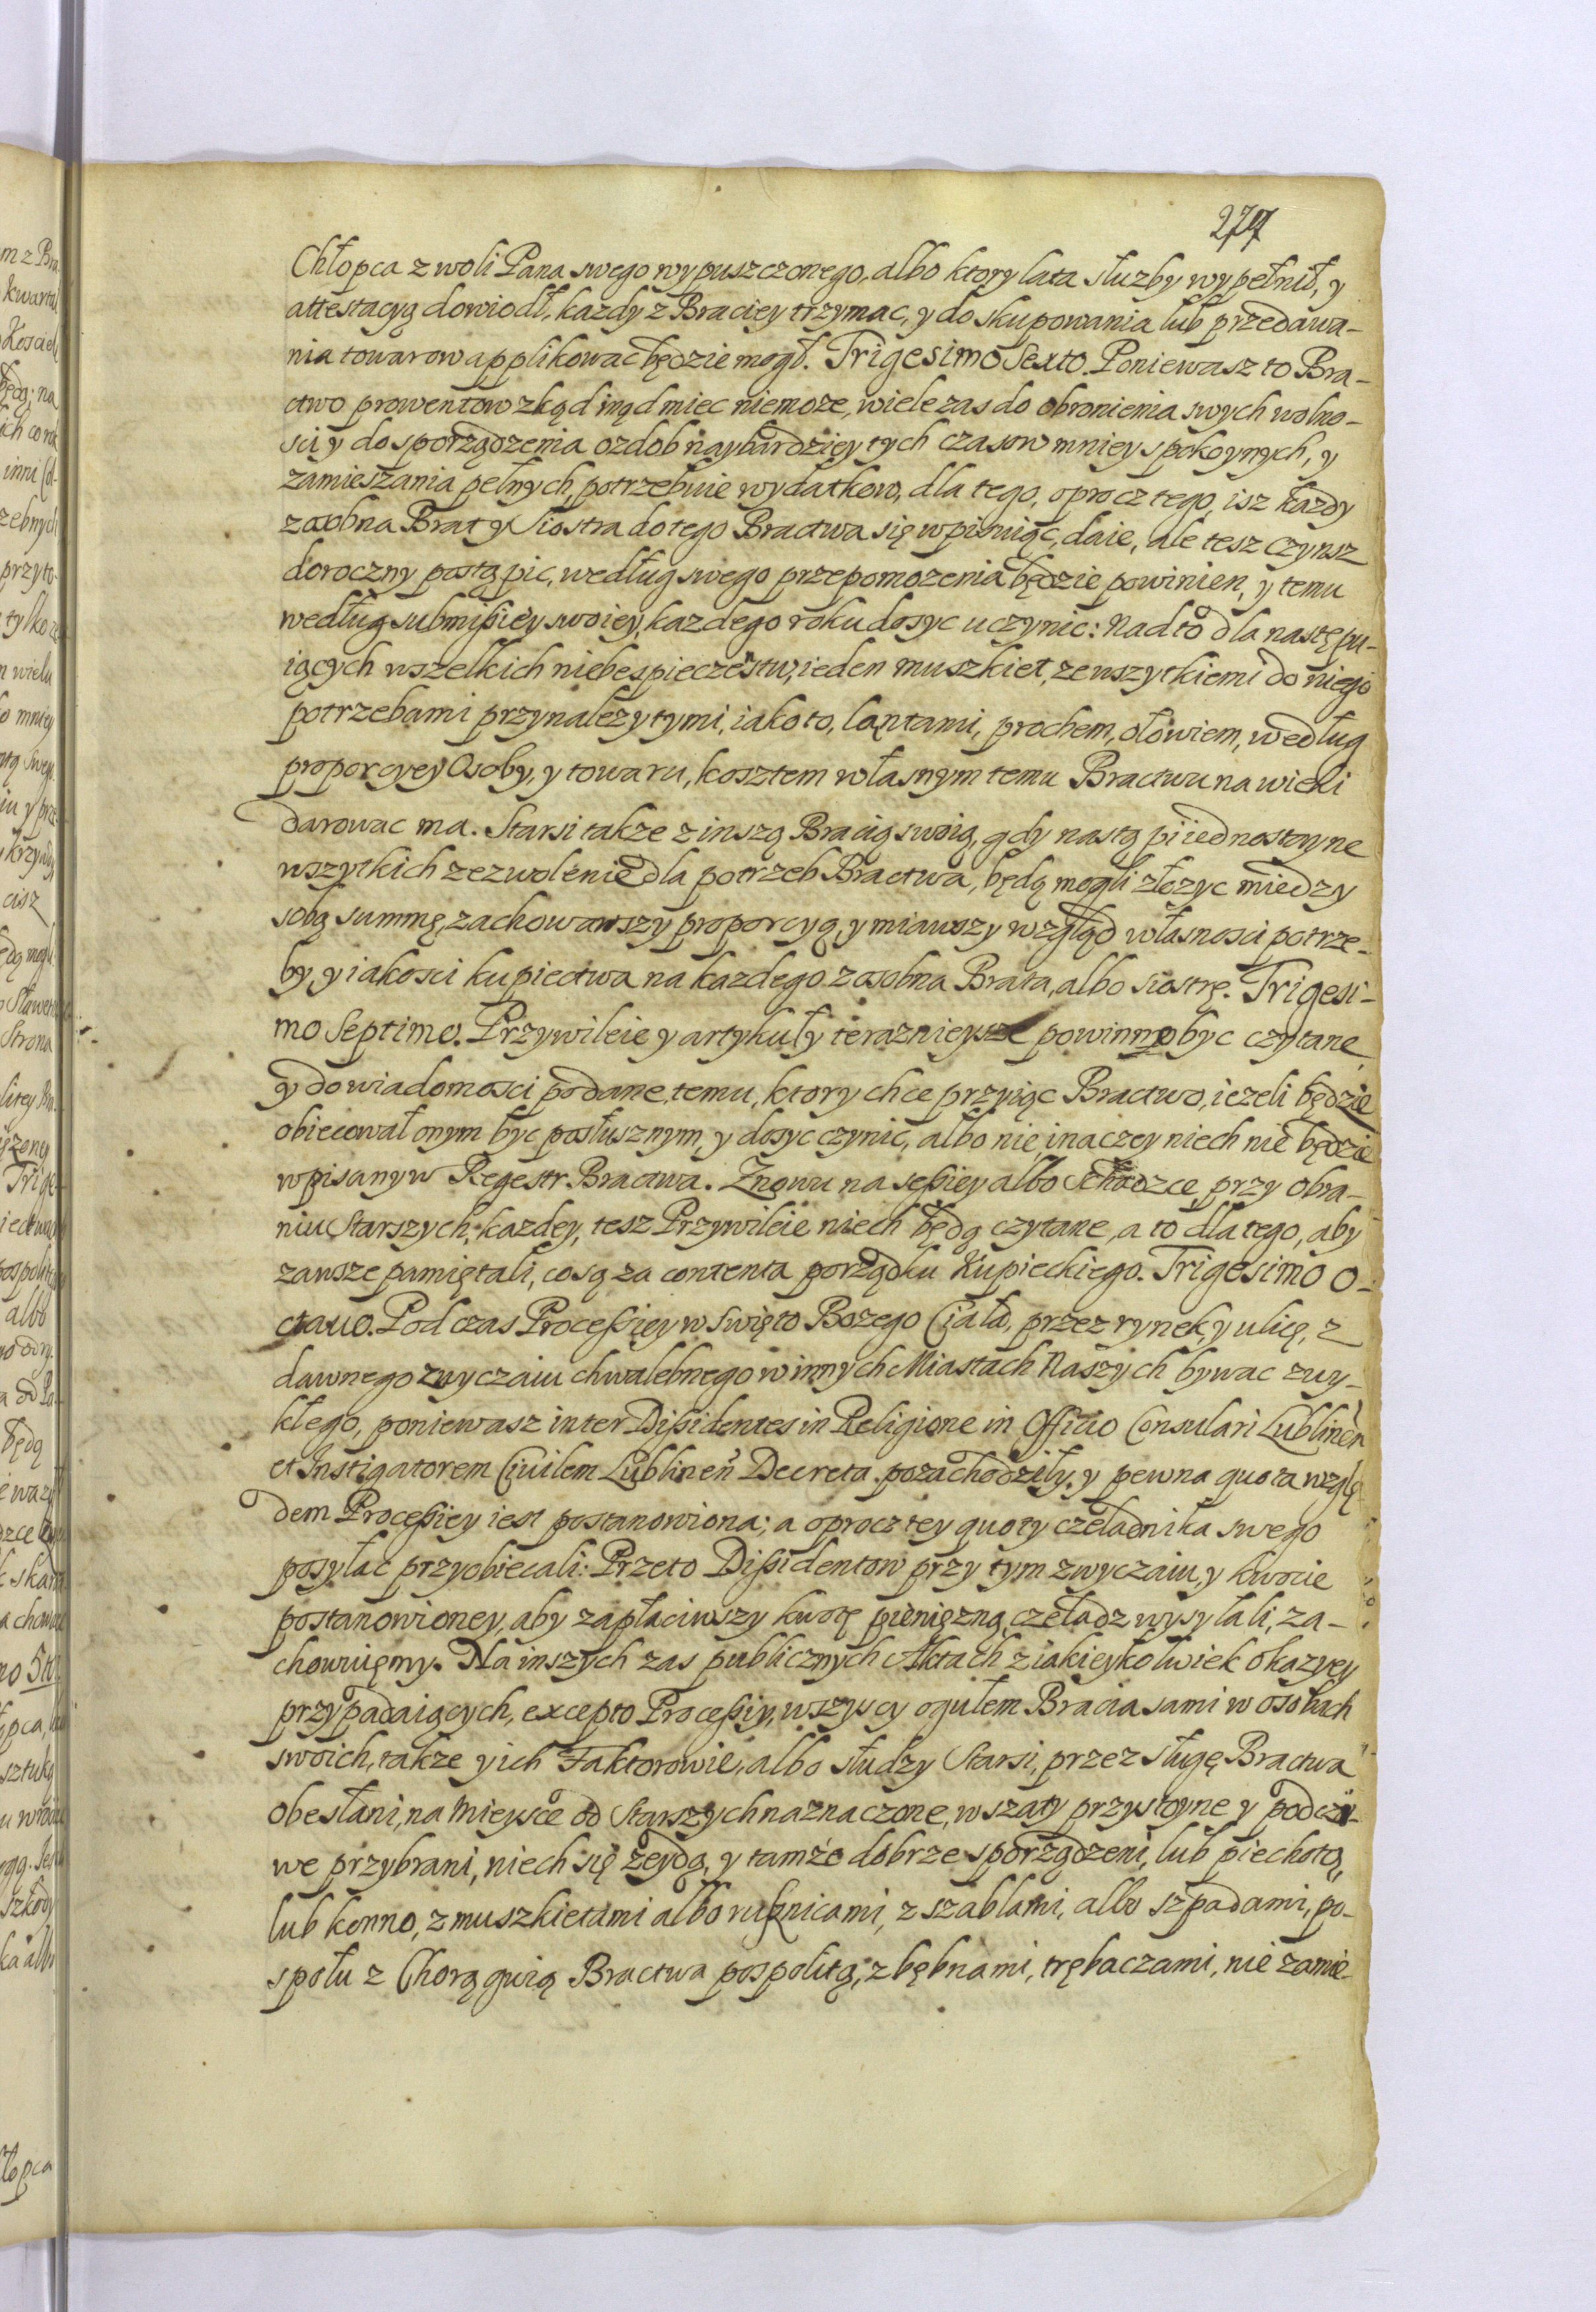 274
Chłopca z woli Pana swego wypuszczonego, albo ktory lata słuzby wypełnił, y
attestacyą dowiodł, kazdy z Braciey trzymac, y do skupowania lub przedawa-
nia towarow applikowac będzie mogł. Trigesimo Sexto. Poniewasz to Bra-
ctwo prowentow zkąd inąd miec niemoze, wiele zas do obronienia swych wolno-
sci y do sporządzenia ozdob naybardziey tych czasow mniey spokoynych, y
zamieszania pełnych, potrzebuie wydatkow, dla tego, oprocz tego, isz kazdy
zosobna Brat y Siostra do tego Bractwa się wpisuiąc, daie, ale tesz czynsz
doroczny postąpic, według swego przepomozenia będzie powinien, y temu
według submissiey swoiey, kazdego roku dosyc uczynic: Nad to dla następu-
iących wszelkich niebespieczenstw, ieden muszkiet, ze wszytkiemi do niego
potrzebami przynalezytymi, iako to, lontami, prochem, ołowiem, według
proporcyey Osoby, y towaru, kosztem własnym temu Bractwu na wieki
darowac ma. Starsi takze z inszą Bracią swoią, gdy nastąpi iednostayne
wszytkich zezwolenie dla potrzeb Bractwa, będą mogli złozyc miedzy
sobą summę, zachowawszy proporcyą, y miawszy wzgląd własnosci potrze-
by, y iakosci kupiectwa na kazdego zosobna Brata, albo siostrę. Trigesi-
mo Septimo. Przywileie y artykuły teraznieysze powinny byc czytane
y do wiadomosci podane, temu, ktory chce przyiąc Bractwo, iezeli będzie
obiecował onym byc posłusznym, y dosyc czynic, albo nie, inaczey niech nie będzie
wpisany w Regestr Bractwa. Znowu na sessiey albo schadzce przy obra-
niu Starszych, kazdey, tesz Przywileie niech będą czytane, a to dla tego, aby
zawsze pamiętali, co są za contenta porządku Kupieckiego. Trigesimo o-
ctauo. Pod czas Processiey w swięto Bozego Ciała, przez rynek, y ulicę, z
dawnego zwyczaiu chwalebnego w innych Miastach Naszych bywac zwy-
kłego, poniewasz inter Dissidentes in Religione in Officio Consulari Lublinen
et Instigatorem Ciuilem Lublinen Decreta pozachodziły, y pewna quota wzglę
dem Processiey iest postanowiona; a oprocz tey quoty czeladnika swego
posyłac przyobiecali: Przeto Dissidentow przy tym zwyczaiu, y kwocie
postanowioney, aby zapłaciwszy kwotę pienięzną, czeladz wysyłali, za-
chowuięmy. Na inszych zas publicznych Aktach z iakieykolwiek okazyey
przypadaiących, excepto Processiy, wszyscy ogułem Bracia sami w osobach
swoich, takze y ich Faktorowie, albo słudzy Starsi, przez sługę Bractwa
obesłani, na mieysce od Starszych naznaczone, w szaty przystoyne y podczi-
we przybrani, niech się zeydą, y tamze dobrze sporządzeni, lub piechotą,
lub konno, z muszkietami albo rusznicami, z szablami, albo szpadami, po-
społu z Chorągwią Bractwa pospolitą, z bębnami, trębaczami, nie zamie-